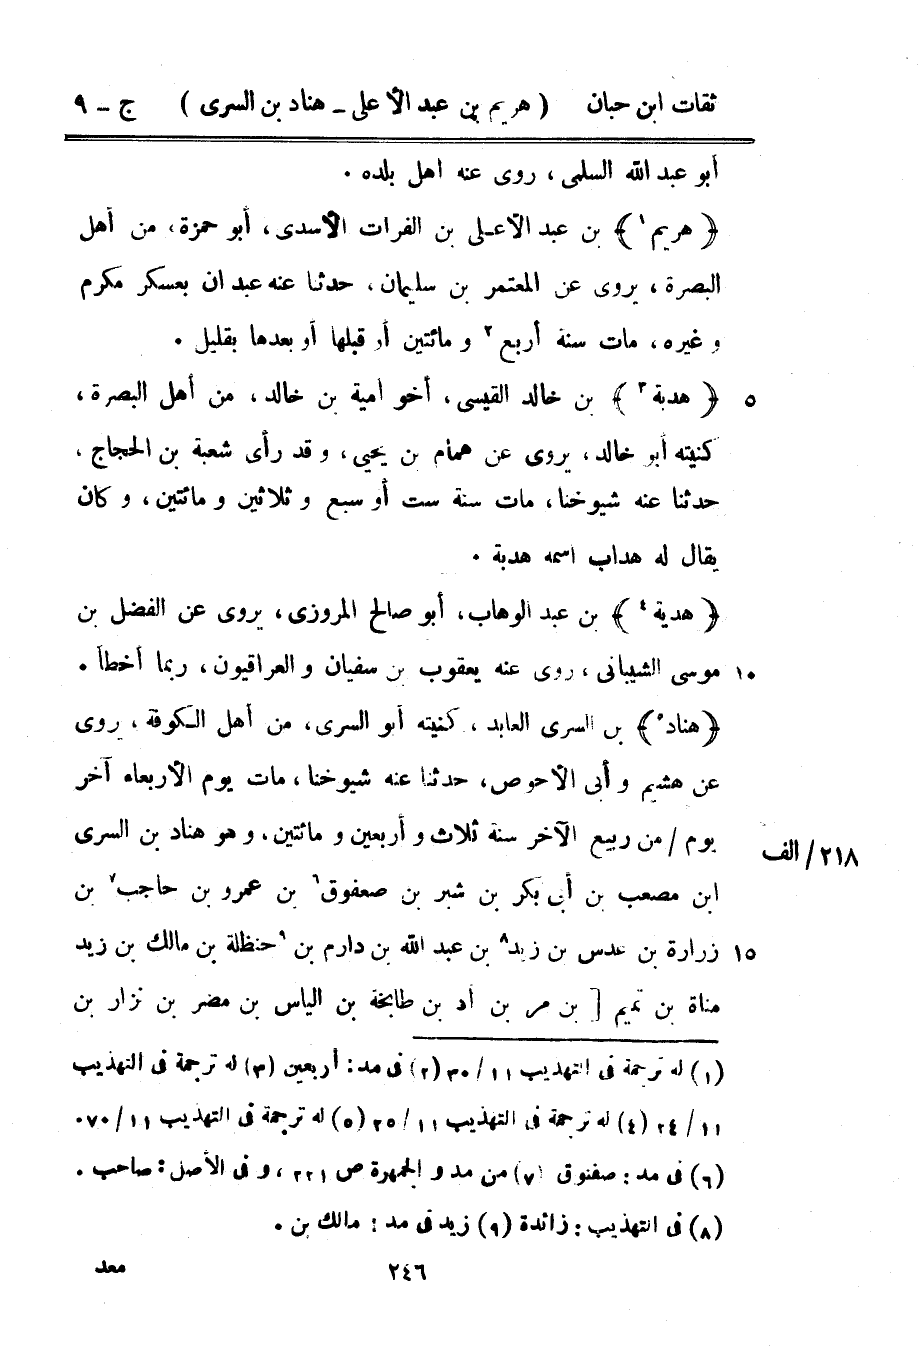 ثقات ابن حبان ( هريم بن عبد الأعلى ـ هناد بن السرى ) ج ـ ٩
أبو عبد الله السلمى، روى عنه اهل بلده .
﴿ هريم ١ ﴾ بن عبد الأعلى بن الفرات الأسدى، أبو حمزة، من أهل
البصرة، يروى عن المعتمر بن سليمان، حدثنا عنه عبدان بعسكر مكرم
و غيره، مات سنة أربع ٢ و مائتين أو قبلها أو بعدها بقليل .
﴿ هدبة ٣ ﴾ بن خالد القيسى، أخو امية بن خالد، من أهل البصرة، ٥
كنيته أبو خالد، يروى عن همام بن يحيى، و قد رأى شعبة بن الحجاج،
حدثنا عنه شيوخنا، مات سنة ست أو سبع و ثلاثين و مائتين، و كان
يقال له هداب اسمه هدبة .
﴿ هدية ٤ ﴾ بن عبد الوهاب، أبو صالح المروزى، يروى عن الفضل بن
موسى الشيبانى، روى عنه يعقوب بن سفيان و العراقيون، ربما أخطأ . ١٠
﴿ هناد ٥ ﴾ بن السرى العابد، كنيته أبو السرى، من أهل الكوفة، روى
عن هشيم و أبى الأحوص، حدثنا عنه شيوخنا، مات يوم الأربعاء آخر
يوم / من ربيع الآخر سنة ثلاث و أربعين و مائتين، و هو هناد بن السرى ٢١٨/ الف
ابن مصعب بن أبى بكر بن شبر بن صعفوق ٦ بن عمرو بن حاجب ٧ بن
زرارة بن عدس بن زيد ٨ بن عبد الله بن دارم بن ٩ حنظلة بن مالك بن زيد ١٥
مناة بن تميم [ بن مر بن أد بن طابخة بن الياس بن مضر بن نزار بن
(١) له ترجمة فى التهذيب ١١/ ٣٠ (٢) فى مد: أربعين (٣) له ترجمة فى التهذيب
١١/ ٢٤ (٤) له ترجمة فى التهذيب ١١/ ٢٥ (٥) له ترجمة فى التهذيب ١١/ ٧٠.
(٦) فى مد: صفنوق (٧) من مد و الجمهرة ص ٢٢١، و فى الأصل: صاحب .
(٨) فى التهذيب: زائدة (٩) زيد فى مد: مالك بن .
٢٤٦ معد